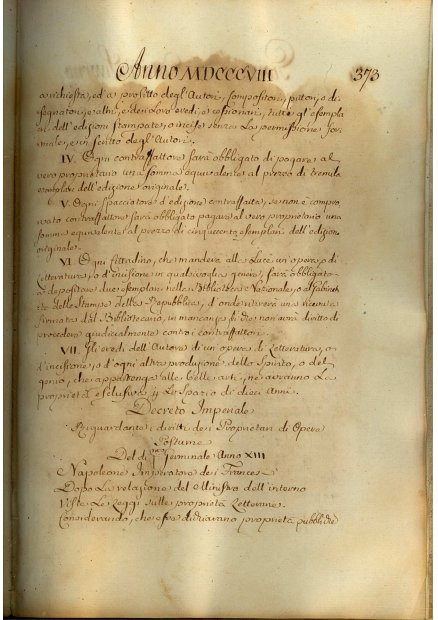 Anno MDCCCVIII 373
a richiesta, ed a profitto degl'Autori, Compositori, pittori, o di-
segnatori, e altri, e dei Loro eredi, o cessionari, tutti gl'esempla
ri dell'edizioni stampate, o incise senza La permissione for
male, e in scritto degl'Autori.
IV. Ogni contraffattore sarà obbligato di pagare al
vero proprietario una somma equivalente al prezzo di tremila
esemplari dell'edizione originale.
V. Ogni spacciatore d'edizione contraffatta, se non è compro
vato contraffattore sarà obbligato pagare al vero proprietario una
somma equivalente al prezzo di cinquecento esemplari dell'edizion
originale.
VI. Ogni Cittadino, che manderà alla Luce un opera, o di
Letteratura, o d'incisione in qualsisoglia genere, sarà obbligato
a depositare due esemplari nella Biblioteca Nazionale, o al Gabinet
to delle Stampe della Repubblica, d'onde riceverà una ricevuta
firmata dal Bibliotecario, in mancanza di che non avrà diritto di
procedere giudicialmente contro i contraffattori.
VII. Gli eredi dell'Autore di un'opera di Letteratura, o
d'incisione, o d'ogni altra produzione dello Spirito, o del
genio, che appartenga alle belle arti, ne avranno La
proprietà esclusiva p Lo Spazio di dieci Anni.
Decreto Imperiale
Riguardante i diritti dei Proprietari di Opere
Postume
Del dì Germinale Anno XIII
Napoleone Imperatore dei Francesi
Dopo La relazione del Ministro dell'interno
Viste Le Leggi sulle proprietà Letterarie.
Considerando, che esse dichiarano proprietà pubbliche